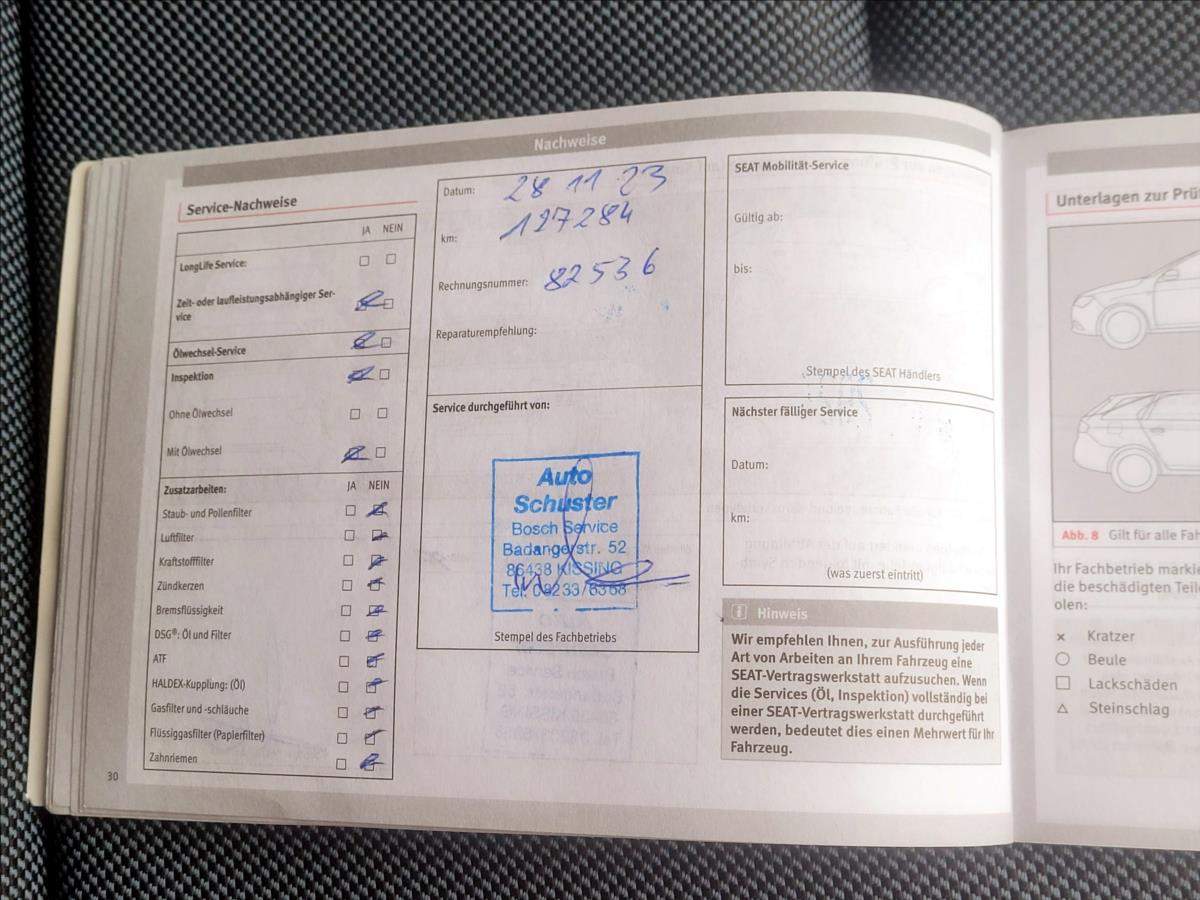 Nachweise
Service-Nachweise
JA NEIN
LongLife Service:
Zeit- oder laufleistungsabhängiger Ser-
vice
Ölwechsel-Service
Inspektion
Ohne Ölwechsel
Mit Ölwechsel
Zusatzarbeiten: JA NEIN
Staub- und Pollenfilter
Luftfilter
Kraftstofffilter
Zündkerzen
Bremsflüssigkeit
DSG®: Öl und Filter
ATF
HALDEX-Kupplung: (Öl)
Gasfilter und -schläuche
Flüssiggasfilter (Papierfilter)
Zahnriemen
30
Datum: 28 11 23
km: 127284
Rechnungsnummer: 82536
Reparaturempfehlung:
Service durchgeführt von:
Auto
Schuster
Bosch Service
Badangerstr. 52
86438 KISSING
Tel. 08233/6368
Stempel des Fachbetriebs
SEAT Mobilität-Service
Gültig ab:
bis:
Stempel des SEAT Händlers
Nächster fälliger Service
Datum:
km:
(was zuerst eintritt)
Hinweis
Wir empfehlen Ihnen, zur Ausführung jeder
Art von Arbeiten an Ihrem Fahrzeug eine
SEAT-Vertragswerkstatt aufzusuchen. Wenn
die Services (Öl, Inspektion) vollständig bei
einer SEAT-Vertragswerkstatt durchgeführt
werden, bedeutet dies einen Mehrwert für Ihr
Fahrzeug.
Unterlagen zur Prü
Abb. 8 Gilt für alle Fah
Ihr Fachbetrieb markie
die beschädigten Teile
olen:
× Kratzer
○ Beule
□ Lackschäden
△ Steinschlag